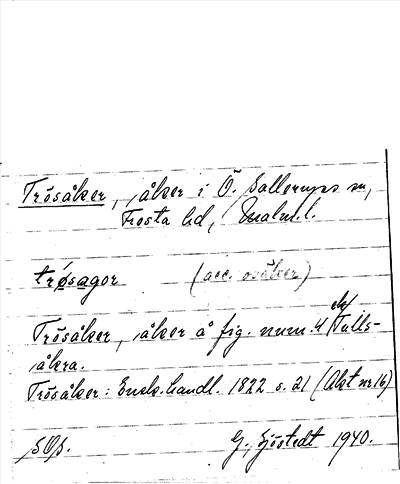 Trösåker, åker i Ö. Sallerups sn,
Frosta hd, Malm.l.
trøsagor (acc. osäker)
Trösåker, åker å fig. num. 4 Tulls-
åkra.
Trösåker: Ensk. handl. 1822 s. 21 (Akt nr 16)
G. Sjöstedt 1940.